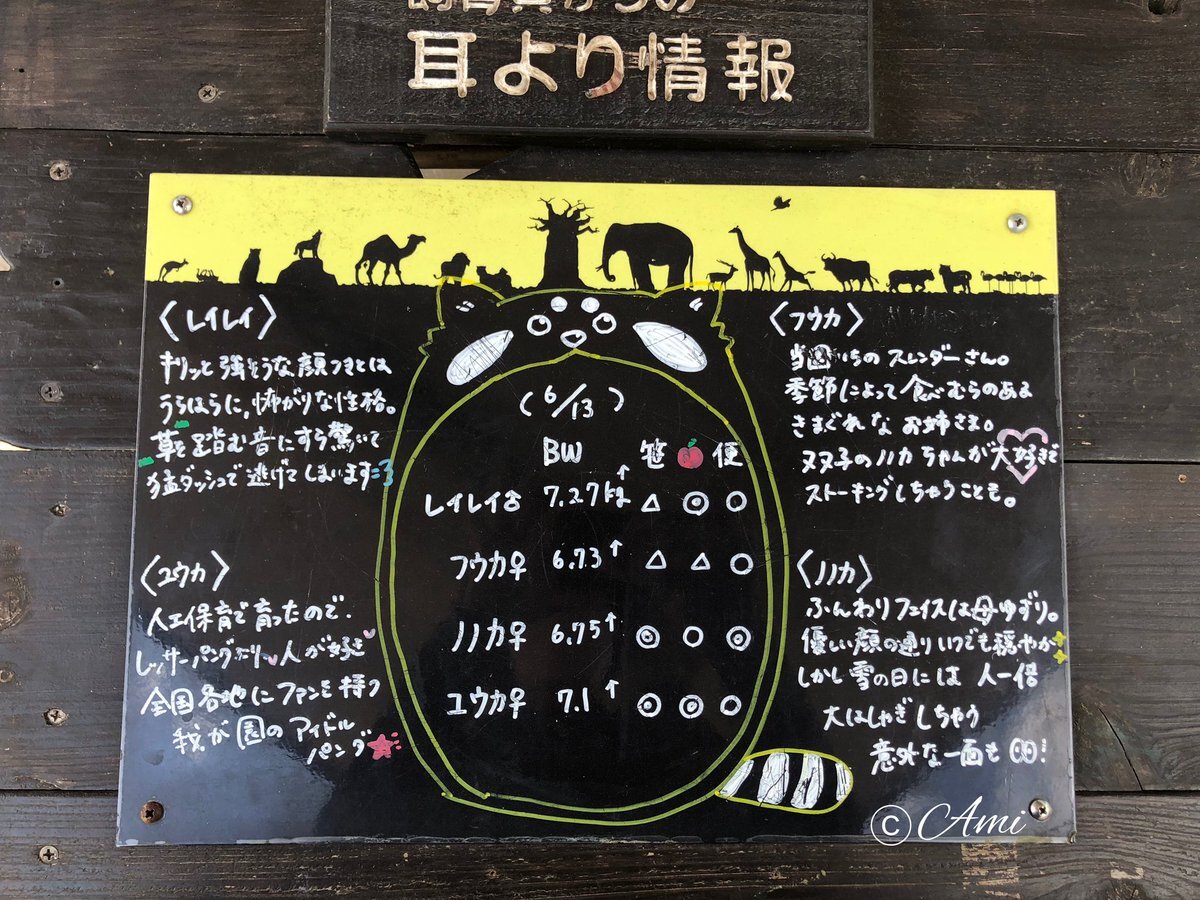 耳より情報
〈レイレイ〉
キリッと強そうな顔つきとは
うらはらに、怖がりな性格。
草を踏む音にすら驚いて
猛ダッシュで逃げてしまいます=3
〈ユウカ〉
人工保育で育ったので、
レッサーパンダより人が好き
全国各地にファンを持つ
我が園のアイドル
パンダ
(6/13)
BW 笹 便
レイレイ♂ 7.27kg↑ △ ◎ ○
フウカ♀ 6.73↑ △ △ ○
ノノカ♀ 6.75↑ ◎ ○ ◎
ユウカ♀ 7.1↑ ◎ ◎ ○
〈フウカ〉
当園いちのスレンダーさん。
季節によって食べむらのある
きまぐれなお姉さま。
双子のノノカちゃんが大好きで
ストーキングしちゃうことも。
〈ノノカ〉
ふんわりフェイスは母ゆずり。
優しい顔の通りいつでも穏やか
しかし雪の日には人一倍
大はしゃぎしちゃう
意外な一面も!
© Ami